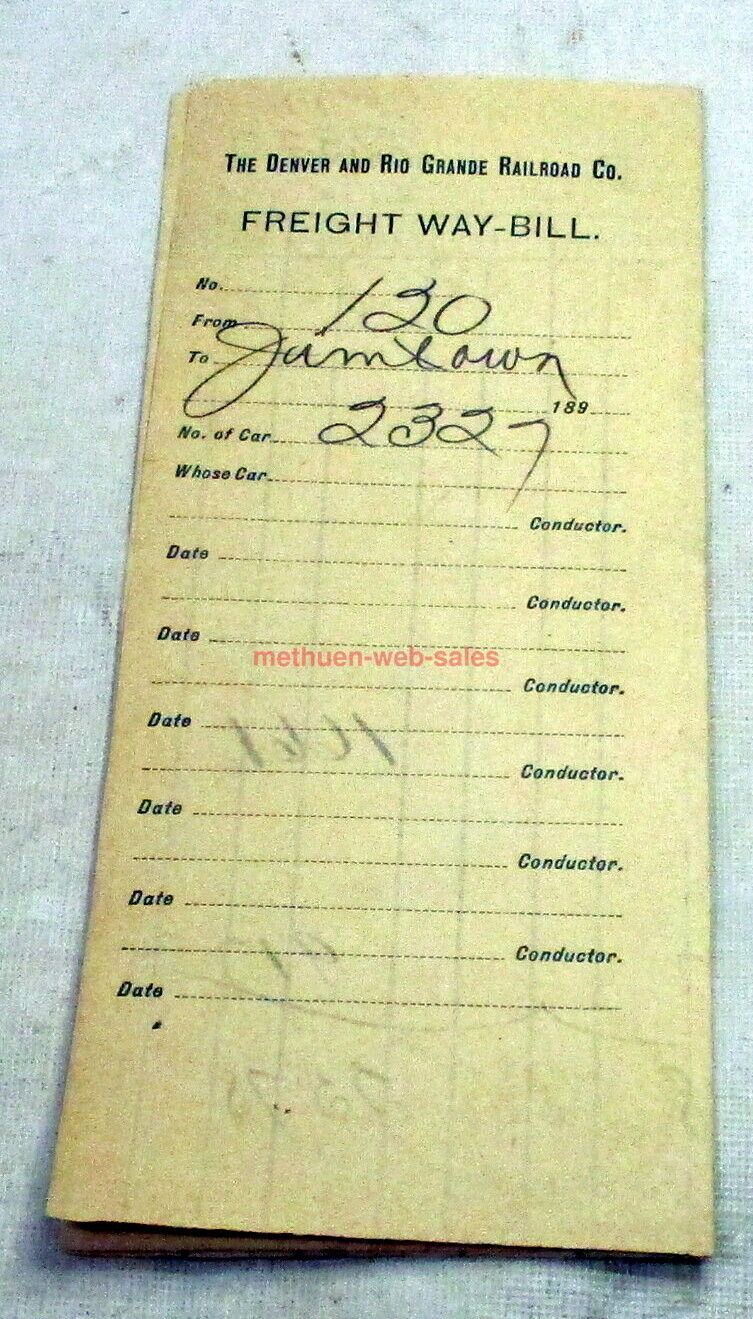 THE DENVER AND RIO GRANDE RAILROAD CO.
FREIGHT WAY-BILL.
No. 130
From
To Jimtown
189
No. of Car 2327
Whose Car
Conductor.
Date
Conductor.
Date
methuen-web-sales
Conductor.
Date
Conductor.
Date
Conductor.
Date
Conductor.
Date